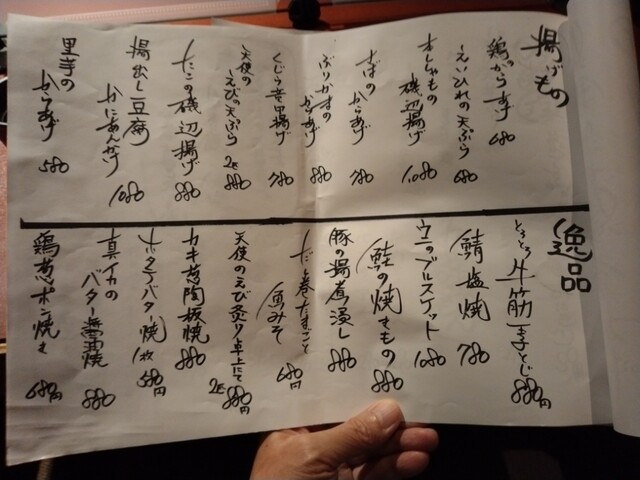 揚げもの
鶏からあげ 680
えいひれの天ぷら 680
磯辺揚げ 1,080
さばのからあげ 780
ぶりかまのからあげ 880
くじら竜田揚げ 780
天使のえびの天ぷら 2尾 880
たこの磯辺揚げ 880
揚出し豆腐
かにあんかけ 1080
里芋の
からあげ 580
逸品
とろとろ牛筋玉子とじ 880円
鯖塩焼 780
ウニのブルスケット 1080
鮭の焼きもの 880
豚の揚煮浸し 880
だし巻たまご 680円
天使のえび炙り 卓上にて 2尾 880円
カキ葱陶板焼 880
ホタテバター焼 1枚 580円
真イカの
バター醤油焼 880
鶏葱ポン焼き 680円